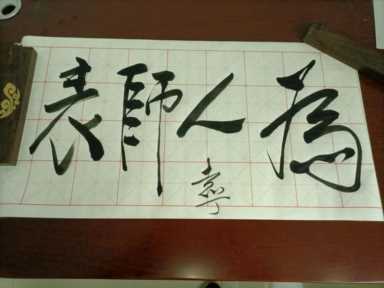 為人師表